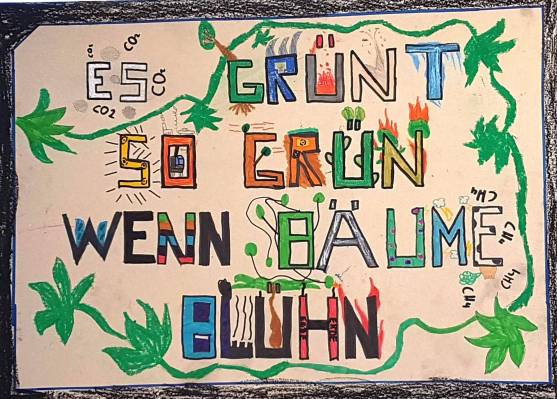 ES GRÜNT
CO₂ CO₂ CO₂ CO2
SO GRÜN
WENN BÄUME
CH₄ CH₄ CH4 CH4
BLÜHN